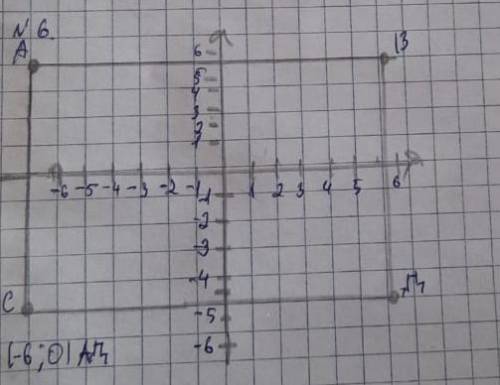 № 6.
А
В
6
5
4
3
2
1
-6 -5 -4 -3 -2 -1 1 2 3 4 5 6
-1
-2
-3
-4
-5
-6
С
Д
(-6;0) АД